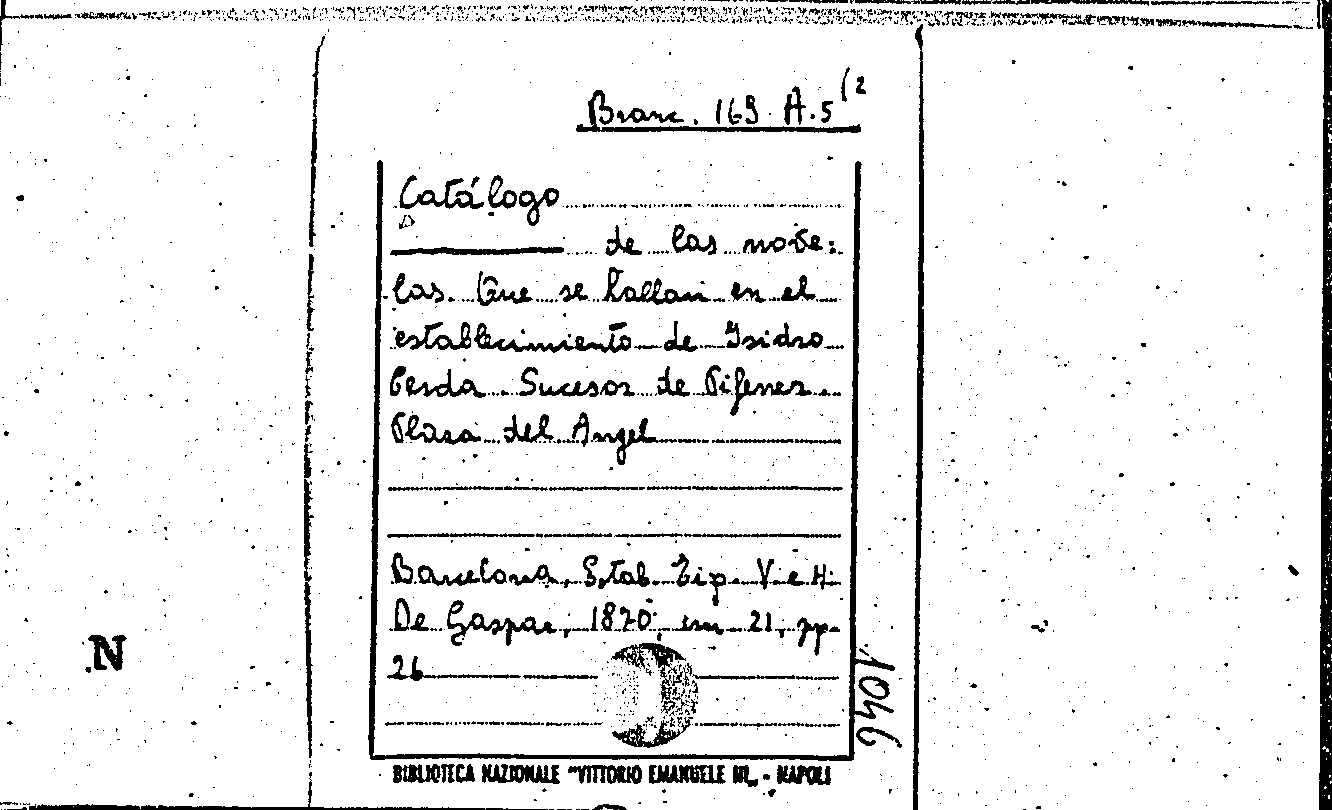 Branc. 169 A.5(2
Catálogo
de las nove:
las. Que se hallan en el
establecimiento de Isidro
Cerda Sucesor de Piferrer.
Plaza del Angel
Barcelona, Stab. Tip. V. e H.
De Gaspar, 1870, cm 21, pp.
26
N
1046
BIBLIOTECA NAZIONALE "VITTORIO EMANUELE III„ - NAPOLI